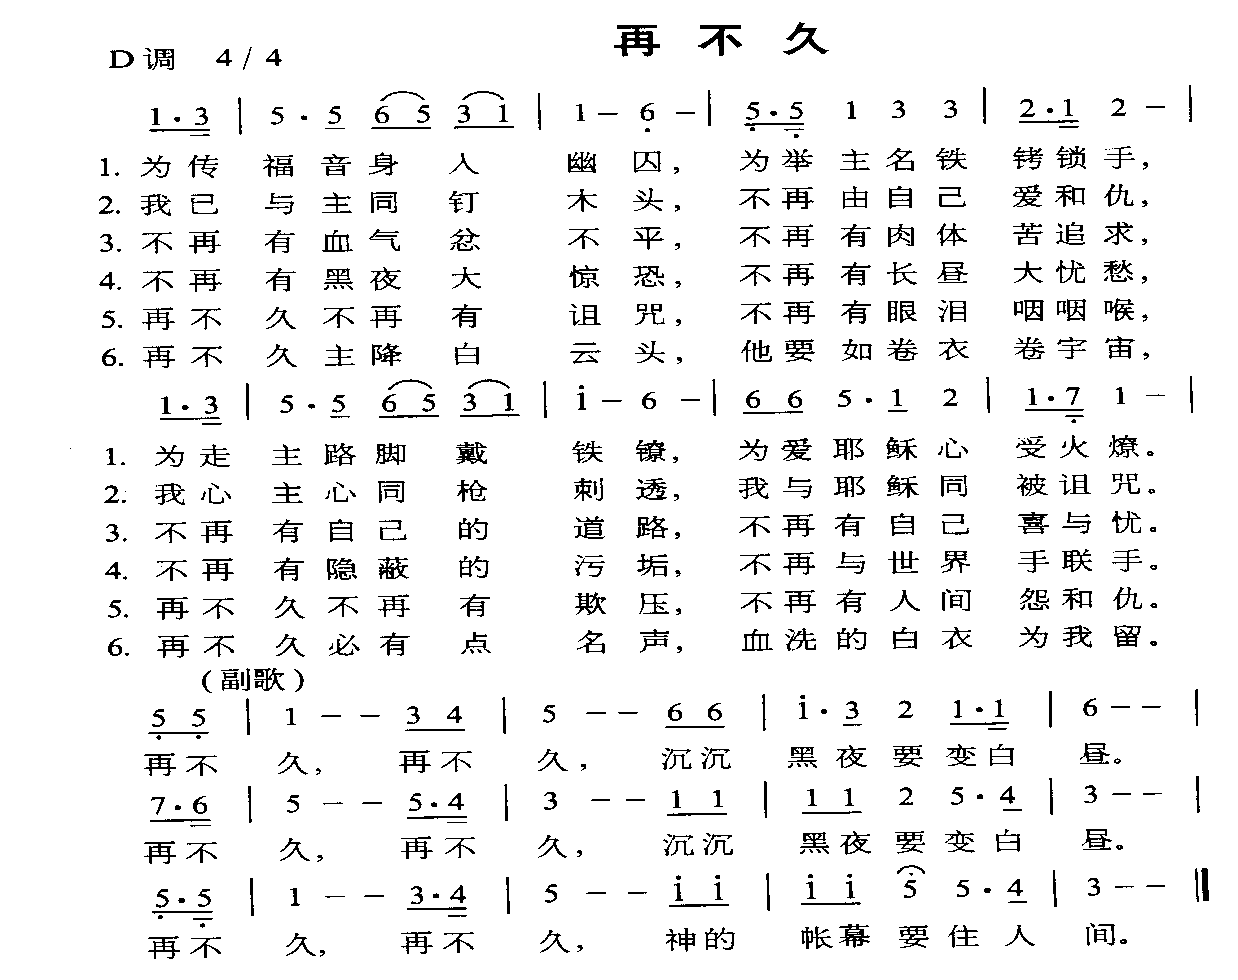 再不久
D调 4/4
1·3 | 5·5 65 31 | 1-6-| 5·5 1 3 3 | 2·1 2-|
1. 为传福音身入幽囚，为举主名铁铐锁手，
2. 我已与主同钉木头，不再由自己爱和仇，
3. 不再有血气忿不平，不再有肉体苦追求，
4. 不再有黑夜大惊恐，不再有长昼大忧愁，
5. 再不久不再有诅咒，不再有眼泪咽咽喉，
6. 再不久主降白云头，他要如卷衣卷宇宙，
1·3 | 5·5 65 31 | i-6-| 66 5·1 2 | 1·7 1-|
1. 为走主路脚戴铁镣，为爱耶稣心受火燎。
2. 我心主心同枪刺透，我与耶稣同被诅咒。
3. 不再有自己的道路，不再有自己喜与忧。
4. 不再有隐蔽的污垢，不再与世界手联手。
5. 再不久不再有欺压，不再有人间怨和仇。
6. 再不久必有点名声，血洗的白衣为我留。
（副歌）
5 5 | 1-- 3 4 | 5-- 6 6 | i·3 2 1·1 | 6--|
再不久，再不久，沉沉黑夜要变白昼。
7·6 | 5-- 5·4 | 3-- 1 1 | 1 1 2 5·4 | 3--|
再不久，再不久，沉沉黑夜要变白昼。
5·5 | 1-- 3·4 | 5-- i i | i i 5 5·4 | 3--‖
再不久，再不久，神的帐幕要住人间。